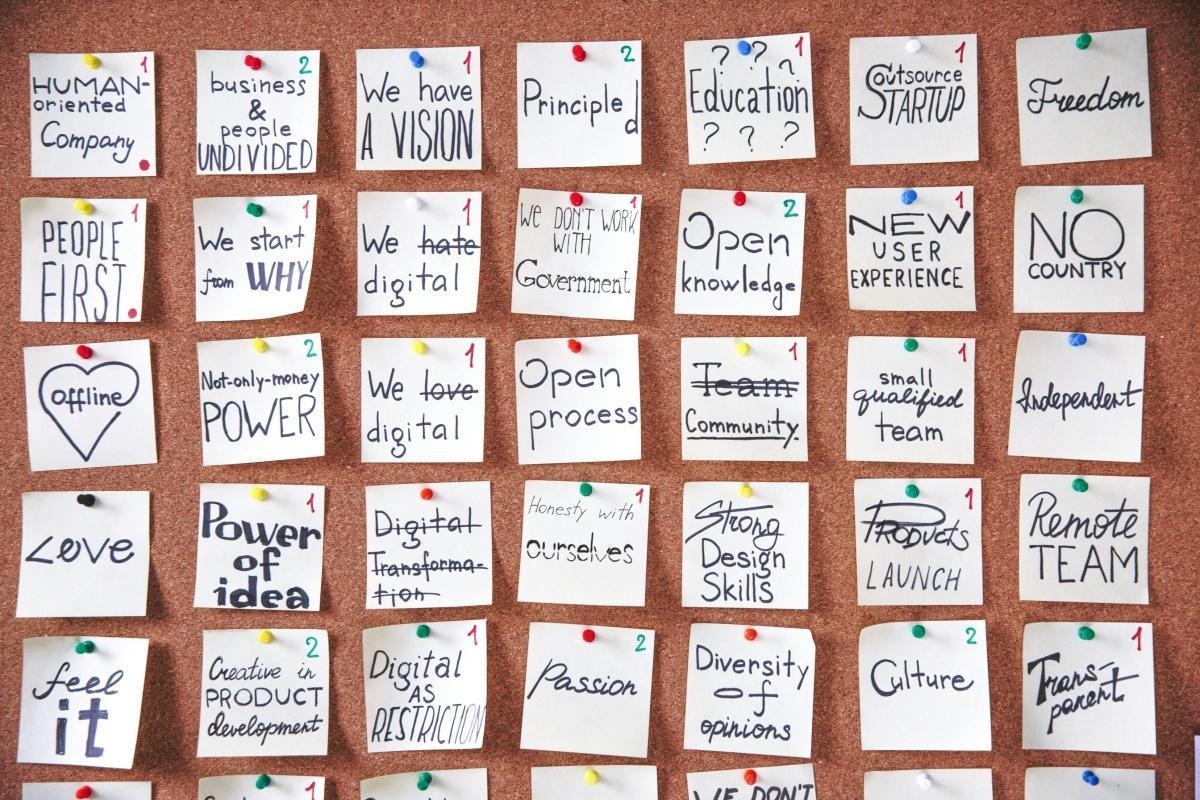 1
HUMAN-
oriented
Company
2
business
&
people
UNDIVIDED
1
We have
A VISION
2
Principled
1
? ? ?
Education
? ? ?
1
Outsource
STARTUP
Freedom
1
PEOPLE
FIRST.
1
We start
from WHY
1
We hate
digital
1
WE DON'T WORK
WITH
Government
2
Open
knowledge
1
NEW
USER
EXPERIENCE
NO
COUNTRY
offline
2
Not-only-money
POWER
1
We love
digital
Open
process
1
Team
Community.
1
small
qualified
team
Independent
Love
1
Power
of
idea
Digital
Transforma-
tion
1
Honesty with
ourselves
Strong
Design
Skills
1
PRODUCTS
LAUNCH
Remote
TEAM
feel
it
2
Creative in
PRODUCT
development
1
Digital
AS
RESTRICTION
2
Passion
Diversity
of
opinions
2
Culture
1
Trans-
parent
1
1
WE DON'T